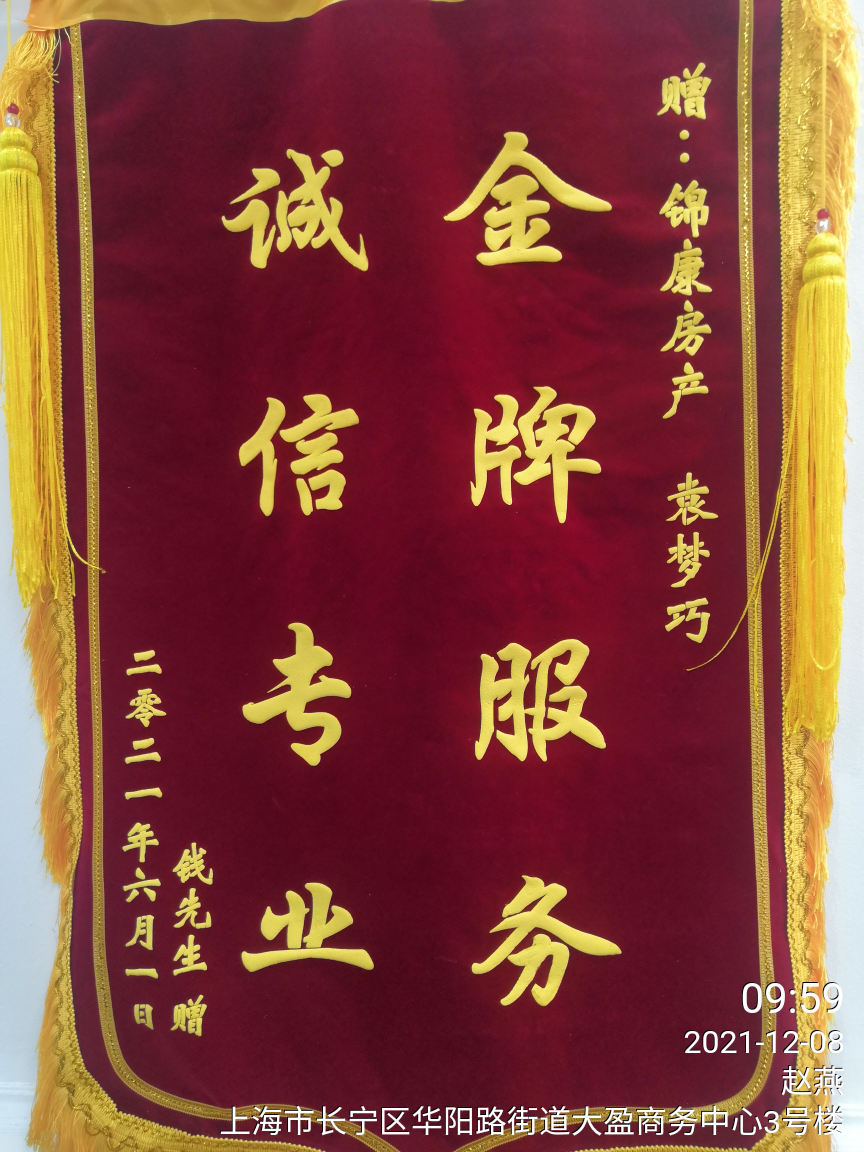 赠:锦康房产 袁梦巧
金牌服务
诚信专业
钱先生 赠
二零二一年六月一日
09:59
2021-12-08
赵燕
上海市长宁区华阳路街道大盈商务中心3号楼